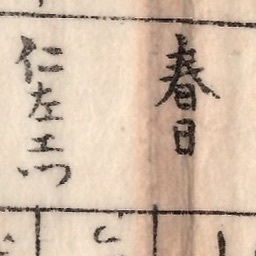 春日
仁左エ門